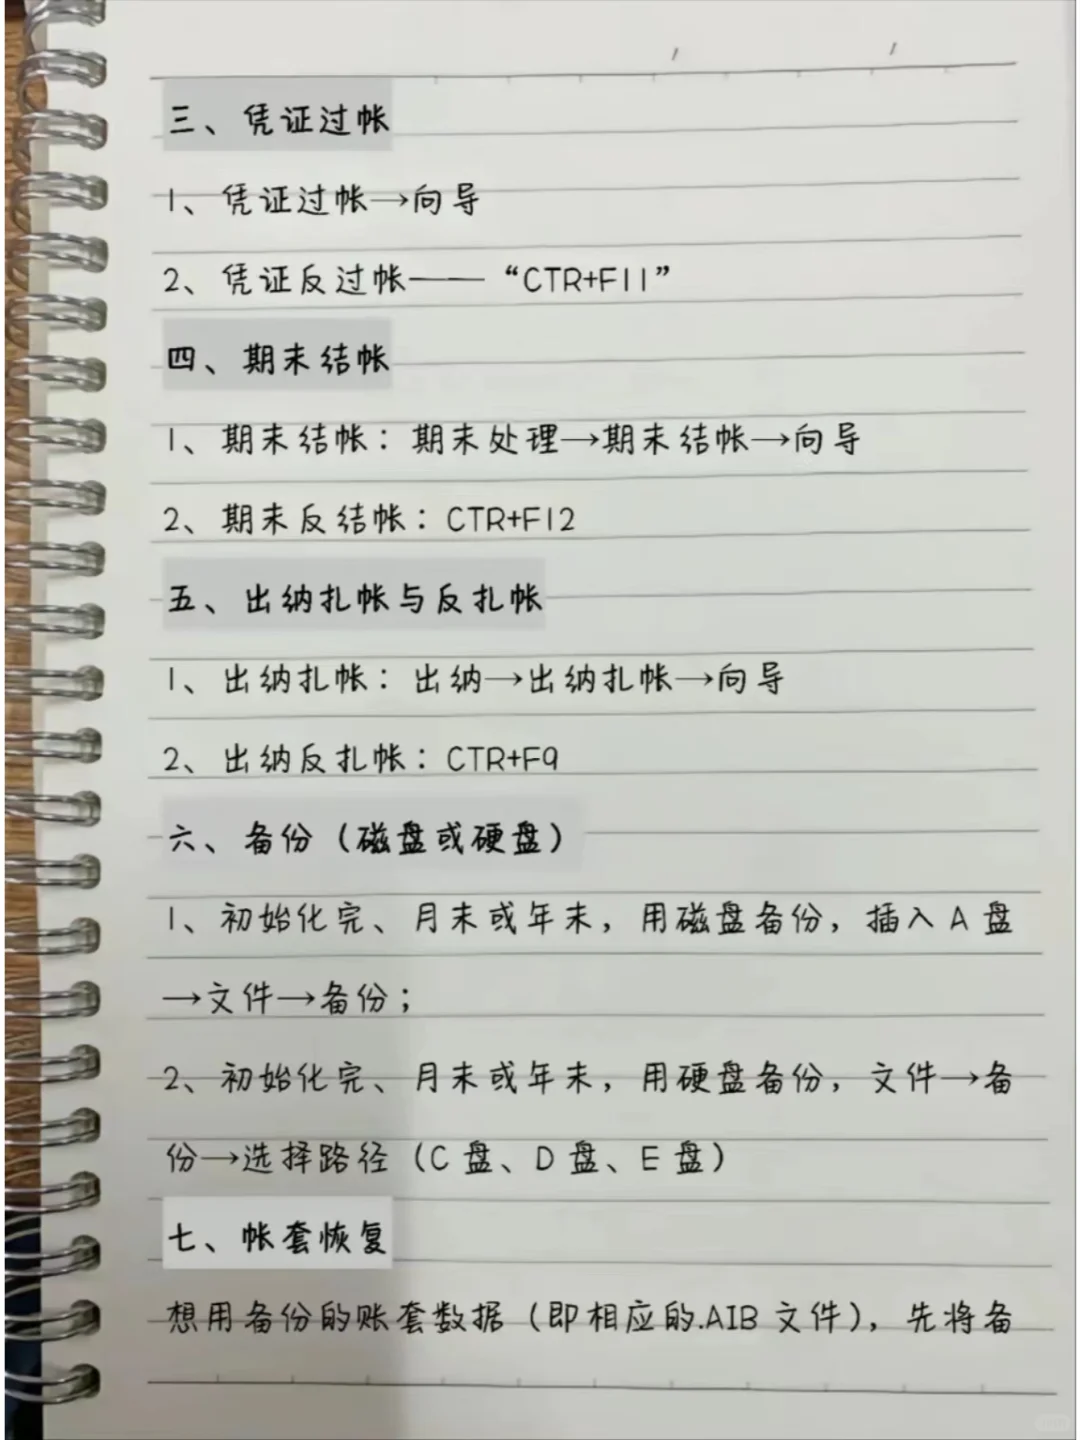 三、凭证过帐
1、凭证过帐→向导
2、凭证反过帐——“CTR+F11”
四、期末结帐
1、期末结帐：期末处理→期末结帐→向导
2、期末反结帐：CTR+F12
五、出纳扎帐与反扎帐
1、出纳扎帐：出纳→出纳扎帐→向导
2、出纳反扎帐：CTR+F9
六、备份（磁盘或硬盘）
1、初始化完、月末或年末，用磁盘备份，插入 A 盘
→文件→备份；
2、初始化完、月末或年末，用硬盘备份，文件→备
份→选择路径（C 盘、D 盘、E 盘）
七、帐套恢复
想用备份的账套数据（即相应的.AIB 文件），先将备